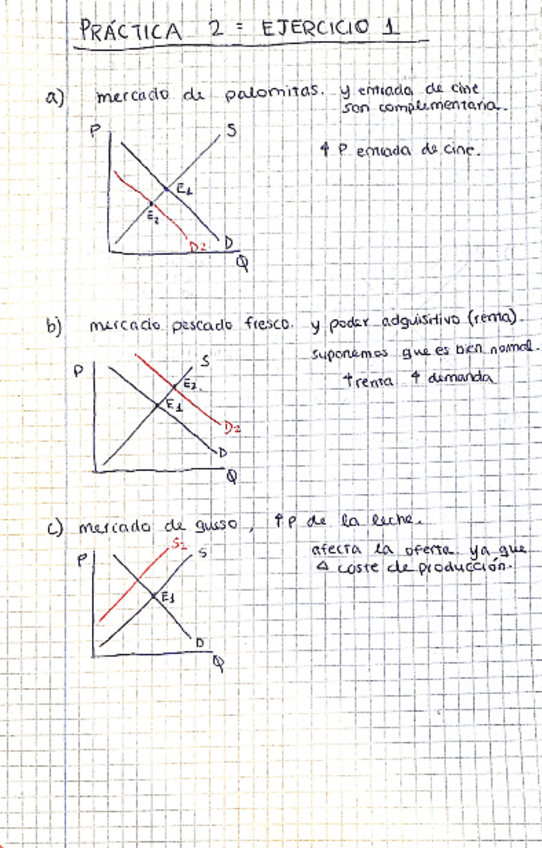 PRÁCTICA 2 = EJERCICIO 1
a) mercado de palomitas. y entrada de cine
son complementaria.
P
S
↑ P entrada de cine.
E1
E2
D2
D
Q
b) mercado pescado fresco. y poder adquisitivo (renta).
suponemos que es bien normal.
P
S
↑ renta ↑ demanda
E2
E1
D2
D
Q
c) mercado de queso, ↑P de la leche.
S2
P
S
afecta la oferta ya que
Δ coste de producción.
E1
D
Q